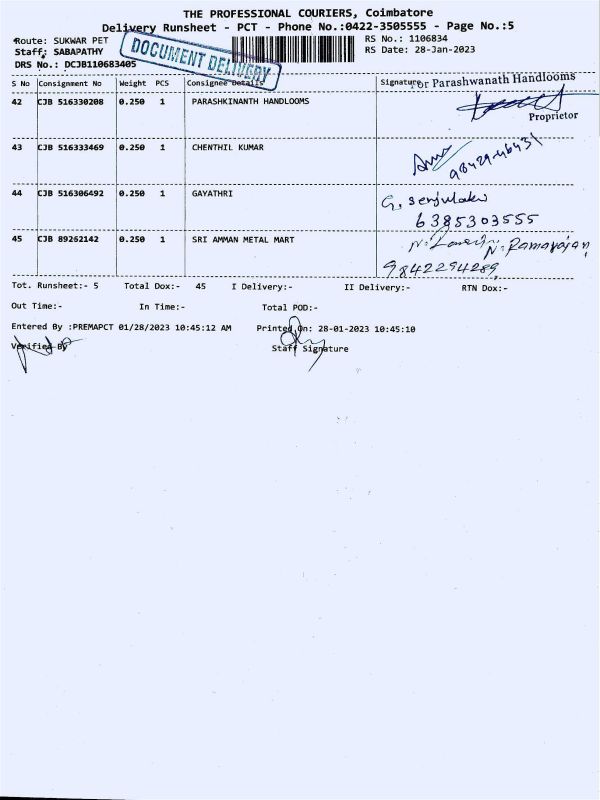 THE PROFESSIONAL COURIERS, Coimbatore
Delivery Runsheet - PCT - Phone No.:0422-3505555 - Page No.:5
Route: SUKWAR PET
RS No.: 1106834
Staff: SABAPATHY
RS Date: 28-Jan-2023
DRS No.: DCJB110683405
DOCUMENT DELIVERY
S No Consignment No Weight PCS Consignee Details Signature
For Parashwanath Handlooms
42 CJB 516330208 0.250 1 PARASHKINANTH HANDLOOMS
Proprietor
43 CJB 516333469 0.250 1 CHENTHIL KUMAR
98429-46431
44 CJB 516306492 0.250 1 GAYATHRI
G.
6385303555
45 CJB 89262142 0.250 1 SRI AMMAN METAL MART
N. Ramarajan
9842294289
Tot. Runsheet:- 5 Total Dox:- 45 I Delivery:- II Delivery:- RTN Dox:-
Out Time:- In Time:- Total POD:-
Entered By :PREMAPCT 01/28/2023 10:45:12 AM Printed On: 28-01-2023 10:45:10
Verified By
Staff Signature